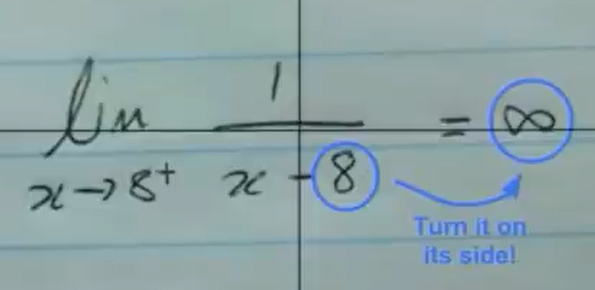 lim 1 = ∞
x→8⁺ x - 8
Turn it on
its side!